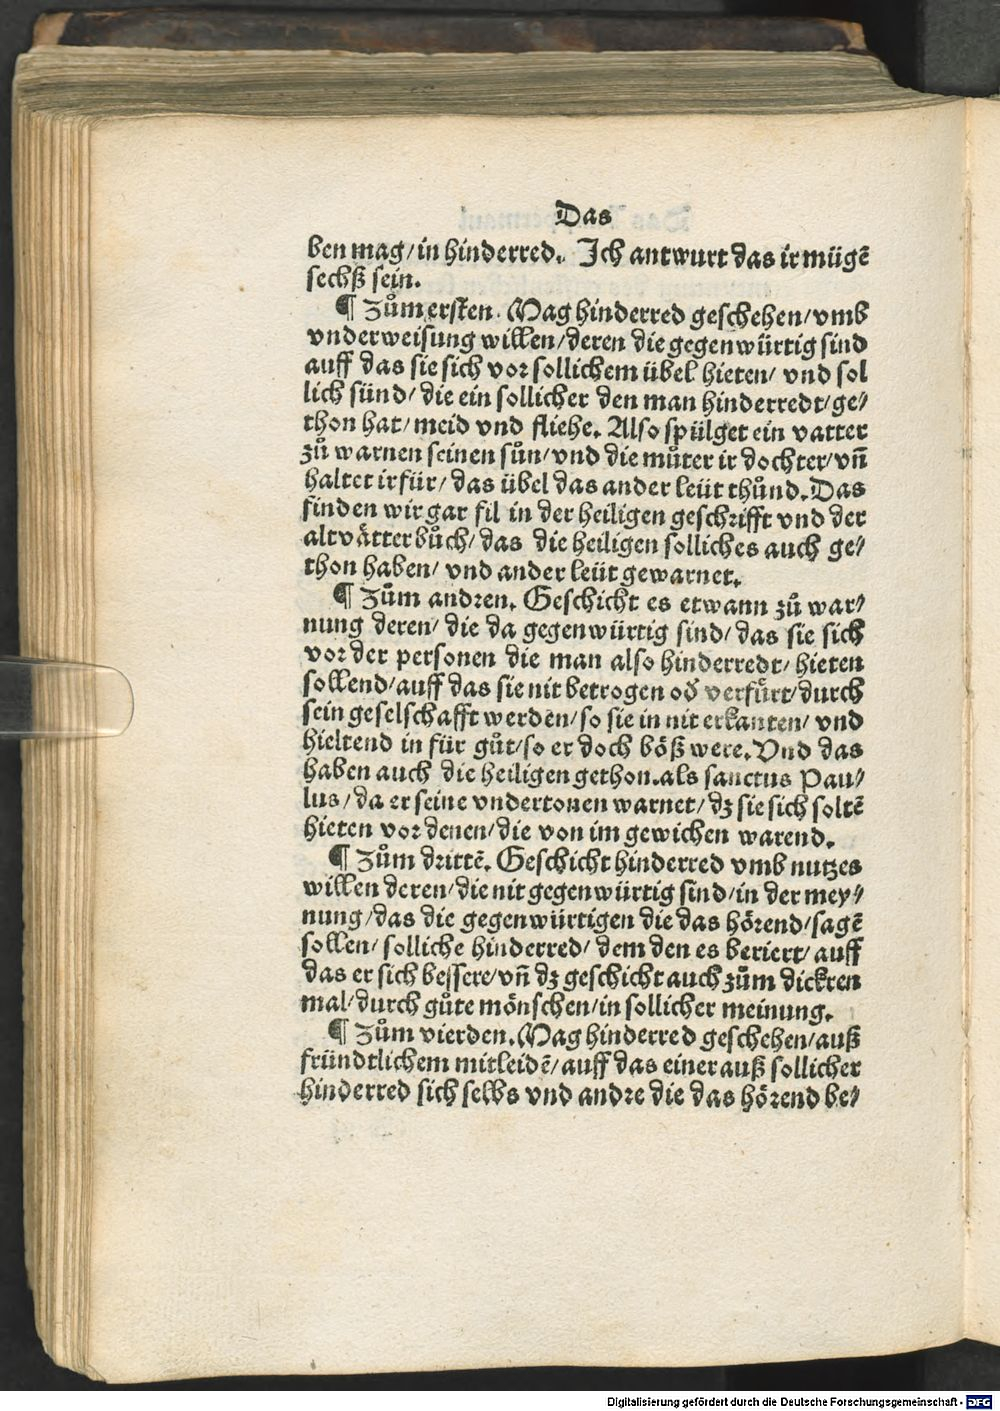 Das
ben mag/ in hinderred. Ich antwurt das ir mügē
sechß sein.
¶ Zům ersten. Mag hinderred geschehen/ vmb
vnderweisung willen/ deren die gegenwürtig sind
auff das sie sich vor sollichem übel hieten/ vnd sol
lich sünd/ die ein sollicher den man hinderredt/ ge/
thon hat/ meid vnd fliehe. Also spülget ein vatter
zů warnen seinen sůn/ vnd die můter ir dochter/ vn̄
haltet ir für/ das übel das ander leüt thůnd. Das
finden wir gar fil in der heiligen geschrifft vnd der
altvåtter bůch/ das die heiligen solliches auch ge/
thon haben/ vnd ander leüt gewarnet.
¶ Zům andren. Geschicht es etwann zů war/
nung deren/ die da gegenwürtig sind/ das sie sich
vor der personen die man also hinderredt/ hieten
sollend/ auff das sie nit betrogen od̕ verfürt/ durch
sein geselschafft werden/ so sie in nit erkanten/ vnd
hieltend in für gůt/ so er doch böß were. Vnd das
haben auch die heiligen gethon. als sanctus Pau/
lus/ da er seine vndertonen warnet/ dz sie sich soltē
hieten vor denen/ die von im gewichen warend.
¶ Zům drittē. Geschicht hinderred vmb nutzes
willen deren/ die nit gegenwürtig sind/ in der mey/
nung/ das die gegenwürtigen die das hörend/ sagē
sollen/ solliche hinderred/ dem den es beriert/ auff
das er sich bessere/ vn̄ dz geschicht auch zům dickren
mal/ durch gůte mönschen/ in sollicher meinung.
¶ Zům vierden. Mag hinderred geschehen/ auß
fründtlichem mitleidē/ auff das einer auß sollicher
hinderred sich selbs vnd andre die das hörend be/
Digitalisierung gefördert durch die Deutsche Forschungsgemeinschaft - DFG